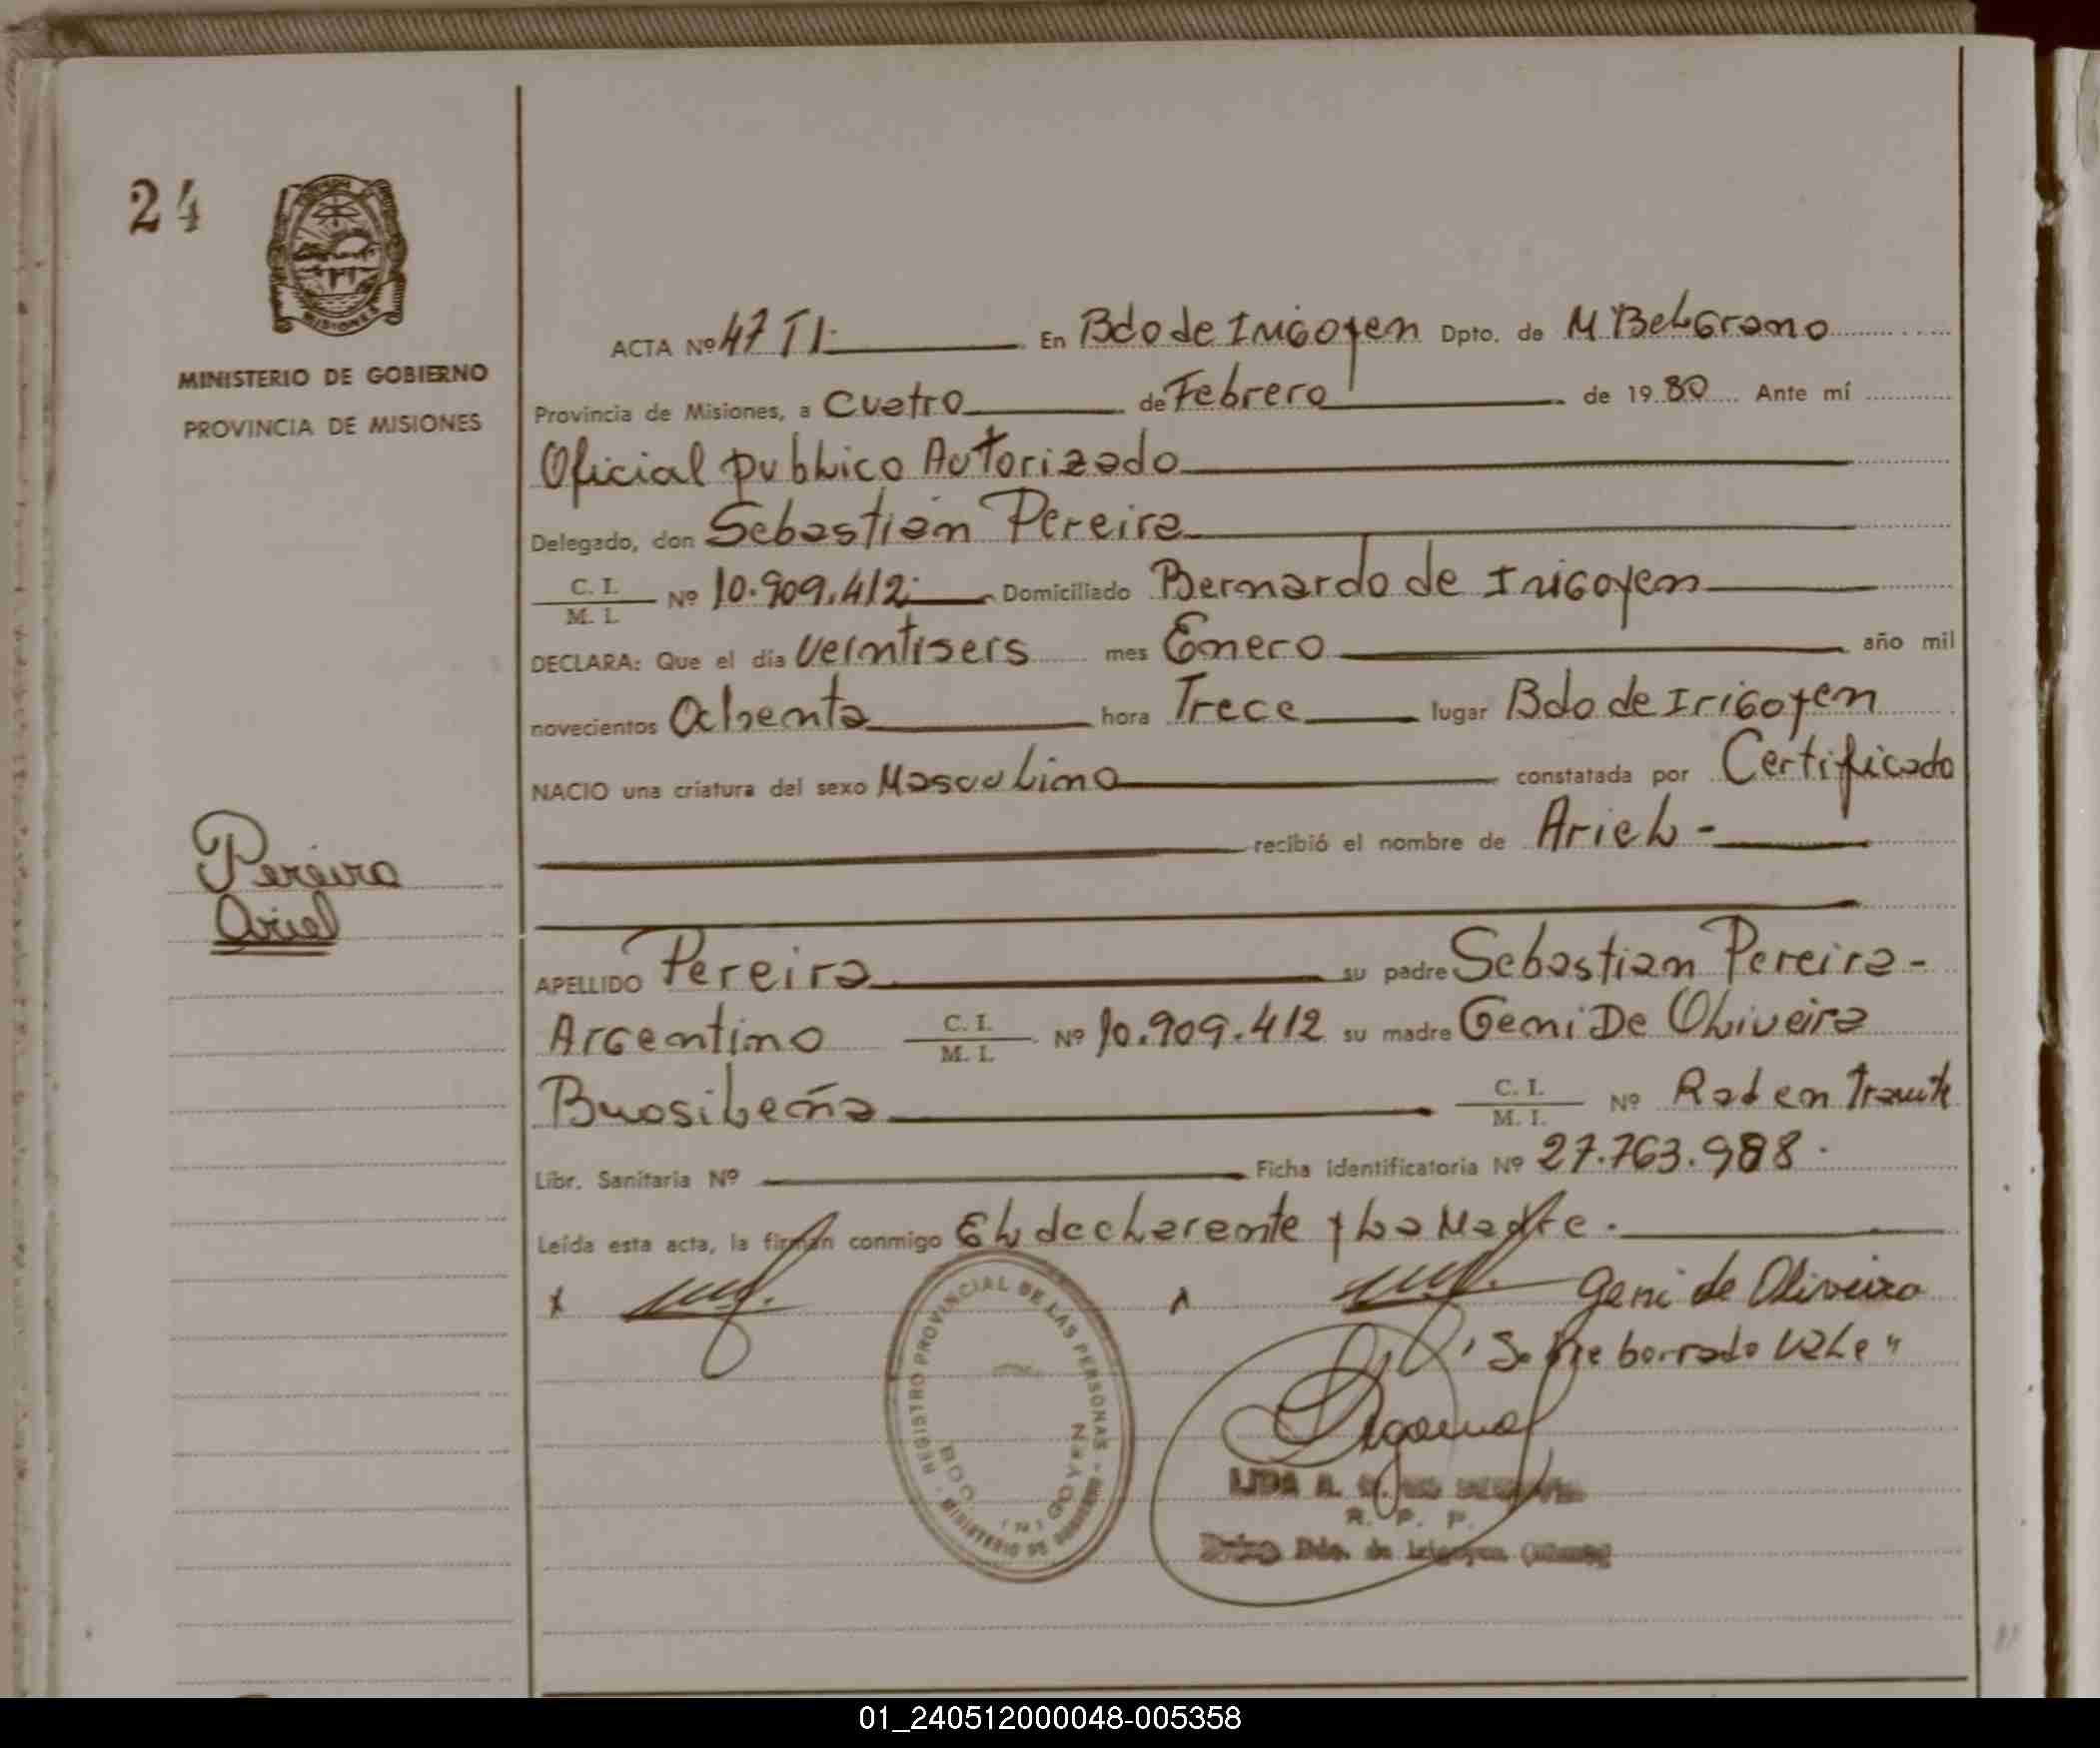 24
MISIONES
MINISTERIO DE GOBIERNO
PROVINCIA DE MISIONES
Pereira
Ariel
ACTA Nº 47 TI. En Bdo de Irigoyen Dpto. de M Belgrano
Provincia de Misiones, a Cuatro de Febrero de 1980 Ante mí
Oficial publico Autorizado
Delegado, don Sebastian Pereira
C. I. / M. I. Nº 10.909.412 Domiciliado Bernardo de Irigoyen
DECLARA: Que el día veintiseis mes Enero año mil
novecientos Ochenta hora Trece lugar Bdo de Irigoyen
NACIO una criatura del sexo Masculino constatada por Certificado
recibió el nombre de Ariel -
APELLIDO Pereira su padre Sebastian Pereira -
Argentino C. I. / M. I. Nº 10.909.412 su madre Geni De Oliveira
Brasileña C. I. / M. I. Nº Rad en Tramite
Libr. Sanitaria Nº Ficha identificatoria Nº 27.763.988.
Leída esta acta, la firman conmigo El declarente y La Madre.
x Geni de Oliveira
"Sobre borrado Vale"
REGISTRO PROVINCIAL DE LAS PERSONAS - MINISTERIO DE GOBIERNO
BDO. IRIGOYEN
LIDA A.
R. P. P.
Bdo. de Irigoyen
01_240512000048-005358